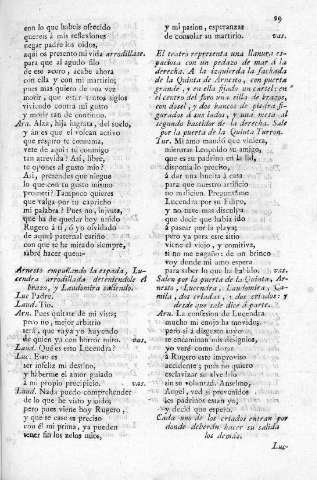 29
con lo que habeis ofrecido
quereis á mis reflexîones
negar padre los oidos,
aquí os presento mi vida arrodillase.
para que al agudo filo
de ese acero, acabe ahora
con ella y con mi martirio;
pues mas quiero de una vez
morir, que estar tantos siglos
viviendo contra mi gusto
y morir tan de continuo.
Arn. Alza, hija ingrata, del suelo,
y án es que el volcan activo
que respiro te consuma,
vete de aquí: tú conmigo
tan atrevida? Así, libre,
te opones al gusto mio?
Así, pretendes que niegue
lo que con tu gusto mismo
prometí? Tampoco quieres
que valga por tu capricho
mi palabra? Pues no, injusta,
que ha de quedar hoy unido
Rugero á tí, ó yo olvidado
de aquel paternal cariño
con que te he mirado siempre,
sabré hacer que
Arnesto empuñando la espada, Lucendra
arrodillada deteniendole el
brazo, y Laudomira saliendo.
Luc Padre.
Laud. Tio.
Arn. Pues quitate de mi vista;
pero no, mejor arbitrio
será, que vaya yo huyendo
de quien ya con horror miro. vas.
Laud. Qué es esto Lucendra?
Luc. Esto es
ser infeliz mi destino,
y haberme el amor guiado
á mi propio precipicio. vas.
Laud. Nada puedo comprehender
de lo que he visto y oido;
pero pues viene hoy Rugero,
y que se case es preciso
con él mi prima, ya pueden
tener fin los zelos mios,
y mi pasion, esperanzas
de consolar su martirio. vas.
El teatro representa una llanura espaciosa
con un pedazo de mar á la
derecha. A la izquierda la fachada
de la Quinta de Arnesto, con puerta
grande, y en ella fixado un cartel: en
el centro del foro una silla de brazos,
con dosel, y dos bancos de piedra figurados
á los lados, y una mesa al
segundo bastidor de la derecha. Sale
por la puerta de la Quinta Turron.
Tur. Mi amo mandó que viniera,
mientras Leopoldo su amigo,
que es su padrino en la lid,
disponia lo preciso,
á dar una vuelta á casa
para que nuestro artificio
no malicien. Preguntóme
Lucendra por su Filipo,
y no tuve mas disculpa
que decir que habia ido
á pasear por la playa;
pero ya para este sitio
viene el viejo, y comitiva,
si no me engaño: de un brinco
voy donde mi amo espera
para saber lo que ha habido. vas.
Salen por la puerta de la Quinta, Arnesto,
Lucendra, Laudomira, Camila,
dos criadas, y dos criados: y
desde que sale dice á parte.
Arn. La confesion de Lucendra
mucho mi enojo ha movido;
pero si á disgusto suyo
se encaminan mis designios,
yo veré como dorar
á Rugero este improviso
accidente; pues no quiero
esclavizar su alvedrío
sin su voluntad. Anselmo,
Angel, ved si prevenidos
los padrinos estan ya,
y decid que espero.
Cada uno de los criados entran por
donde deberán hacer su salida
los demas.
Luc-